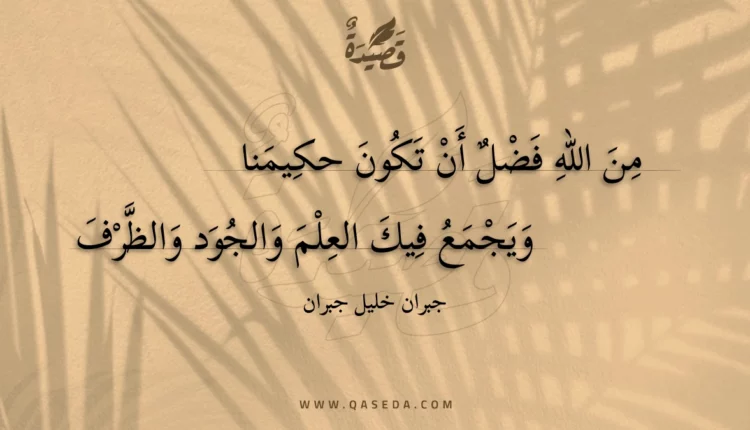 قَصِيْدَةٌ
مِنَ اللهِ فَضْلٌ أَنْ تَكُونَ حكِيمَنا
وَيَجْمَعُ فِيكَ العِلْمَ وَالجُوَد وَالظَّرْفَ
جبران خليل جبران
WWW.QASEDA.COM